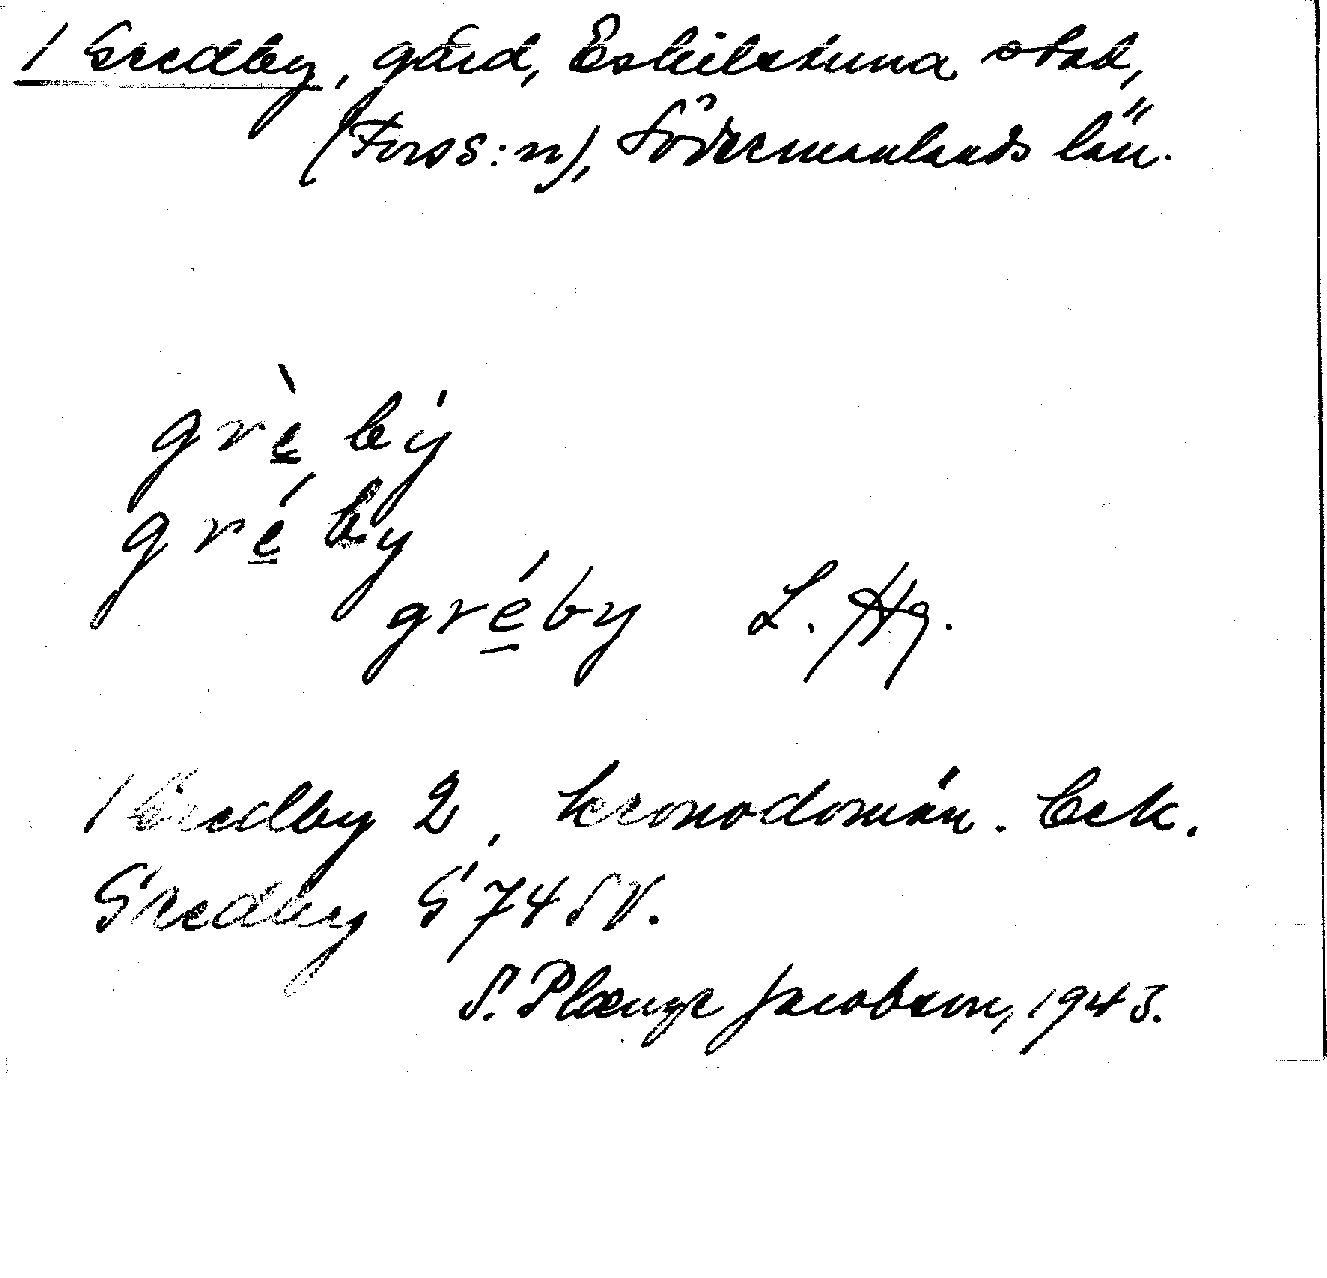 / Gredby, gård, Eskilstuna stad,
(Fors s:n), Södermanlands län.
grè̱ bý
gré̱ by
gré̱by L. Hg.
/ Gredby 2, kronodomän. Eek.
Gredby G 74 SV.
S. Plænge Jacobson, 1943.